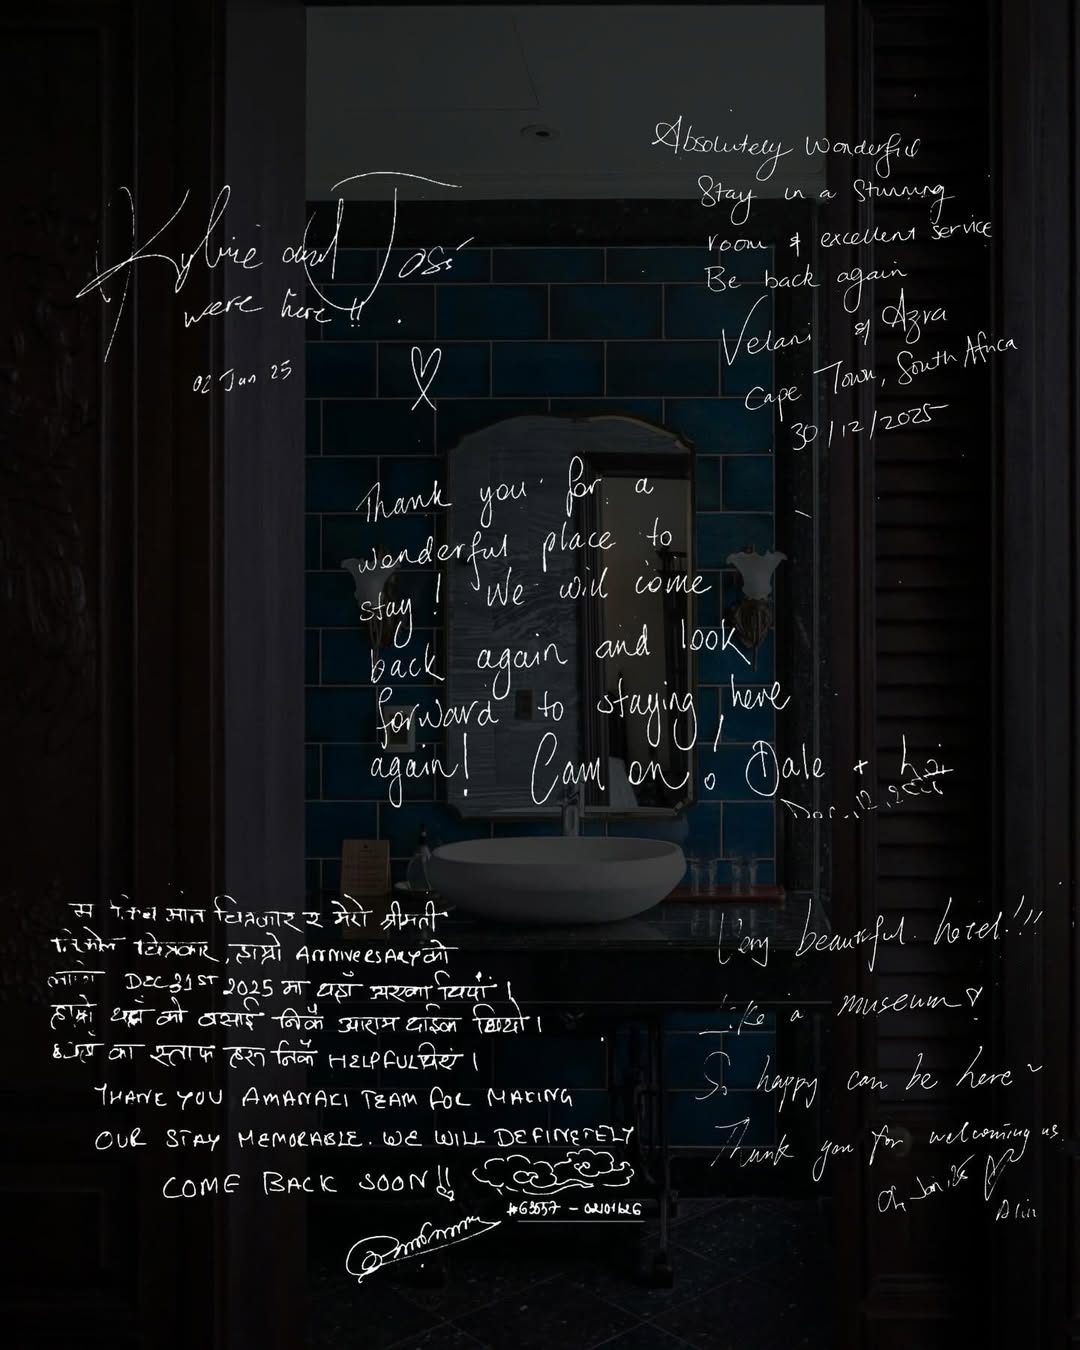 Kylie and José
were here!!
02 Jan 25
Absolutely Wonderful
Stay in a Stunning
room & excellent service
Be back again
Velani & Azra
Cape Town, South Africa
30/12/2025
Thank you for a
wonderful place to
stay! We will come
back again and look
forward to staying here
again! Cam on! Dale +
म मान चित्रकार र मेरो श्रीमती
चित्रकार, हाम्रो ANNIVERSARY को
लागि DEC 31ST 2025 मा यहाँ आएका थियौं।
हाम्रो यहाँ को बसाई निकै आराम दाईक थियो।
यहाँ का स्टाफ हरु निकै HELPFUL थिए।
THANK YOU AMANAKI TEAM FOR MAKING
OUR STAY MEMORABLE. WE WILL DEFINETELY
COME BACK SOON!!
#63557 - 02/01/26
Very beautiful hotel!!!
Like a museum
So happy can be here~
Thank you for welcoming us.